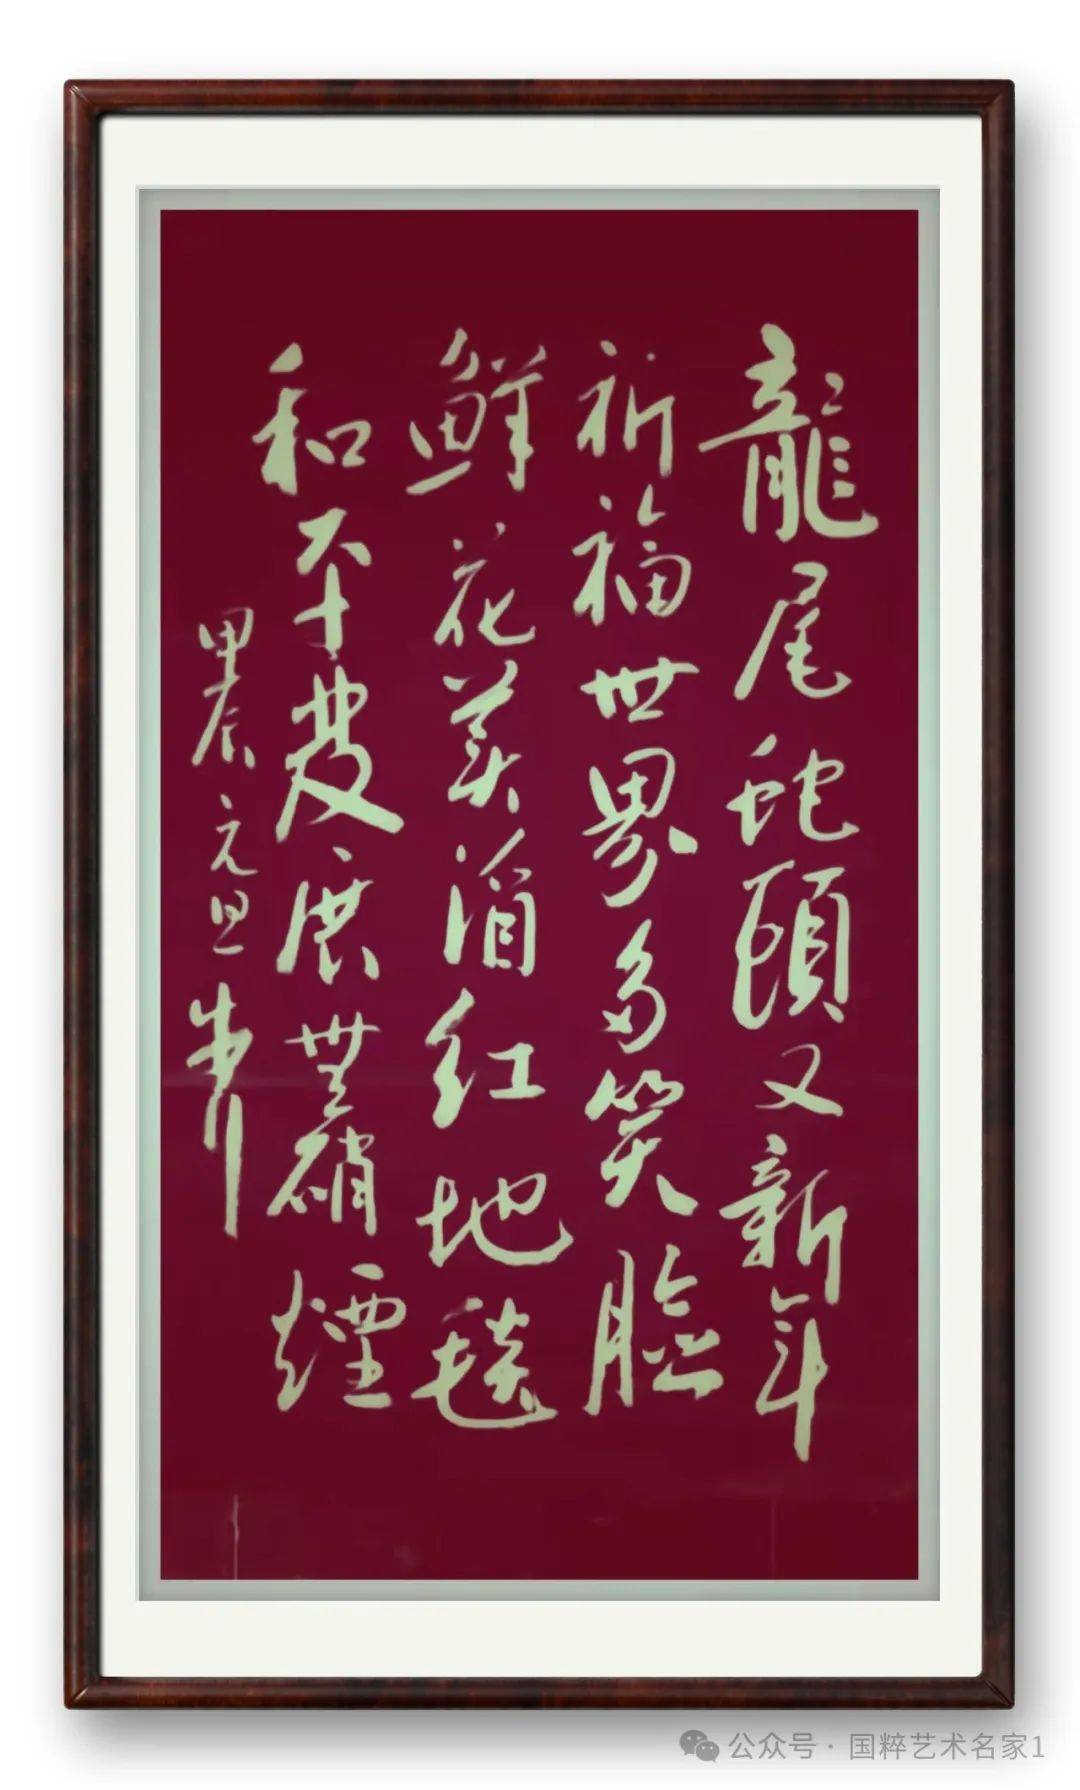 龍尾蛇頭又新年
祈福世界多笑脸
鮮花美酒红地毯
和平發展無硝煙
甲辰元旦
公众号 · 国粹艺术名家1